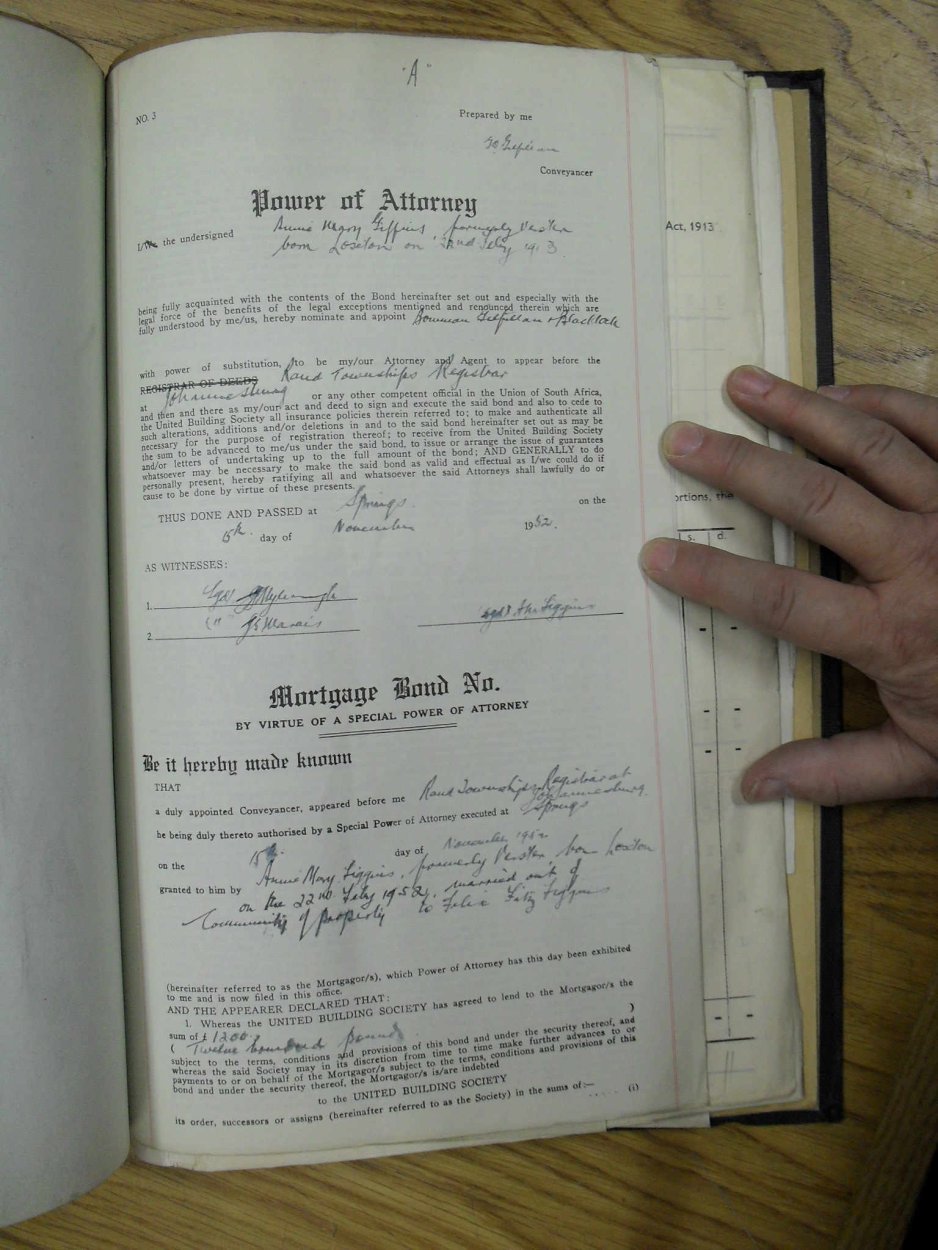 "A"
NO. 3
Prepared by me
Conveyancer
Power of Attorney
I/We the undersigned Annie Mary Figgins, formerly
born Loxton on 22nd July
being fully acquainted with the contents of the Bond hereinafter set out and especially with the
legal force of the benefits of the legal exceptions mentioned and renounced therein which are
fully understood by me/us, hereby nominate and appoint Bowman Gilfillan & Blacklock
with power of substitution, to be my/our Attorney and Agent to appear before the
REGISTRAR OF DEEDS Rand Townships Registrar
at Johannesburg or any other competent official in the Union of South Africa,
and then and there as my/our act and deed to sign and execute the said bond and also to cede to
the United Building Society all insurance policies therein referred to; to make and authenticate all
such alterations, additions and/or deletions in and to the said bond hereinafter set out as may be
necessary for the purpose of registration thereof; to receive from the United Building Society
the sum to be advanced to me/us under the said bond, to issue or arrange the issue of guarantees
and/or letters of undertaking up to the full amount of the bond; AND GENERALLY to do
whatsoever may be necessary to make the said bond as valid and effectual as I/we could do if
personally present, hereby ratifying all and whatsoever the said Attorneys shall lawfully do or
cause to be done by virtue of these presents.
THUS DONE AND PASSED at Springs on the
15th day of November 1952.
AS WITNESSES:
1. Sgd
2. (") Marais
Sgd Figgins
Mortgage Bond No.
BY VIRTUE OF A SPECIAL POWER OF ATTORNEY
Be it hereby made known
THAT
a duly appointed Conveyancer, appeared before me Rand Townships Registrar at
Johannesburg
he being duly thereto authorised by a Special Power of Attorney executed at Springs
on the 15th day of November 1952
granted to him by Annie Mary Figgins, formerly born Loxton
on the 22nd July married out of
Community of property to Felix Figgins
(hereinafter referred to as the Mortgagor/s), which Power of Attorney has this day been exhibited
to me and is now filed in this office.
AND THE APPEARER DECLARED THAT:
1. Whereas the UNITED BUILDING SOCIETY has agreed to lend to the Mortgagor/s the
sum of £1200
( Twelve hundred pounds )
subject to the terms, conditions and provisions of this bond and under the security thereof, and
whereas the said Society may in its discretion from time to time make further advances to or
payments to or on behalf of the Mortgagor/s subject to the terms, conditions and provisions of this
bond and under the security thereof, the Mortgagor/s is/are indebted
to the UNITED BUILDING SOCIETY
its order, successors or assigns (hereinafter referred to as the Society) in the sums of:— (i)
Act, 1913
ortions, the
s. d.